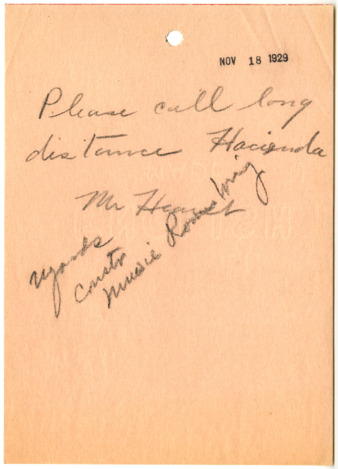 NOV 18 1929
Please call long
distance Hacienda
Mr Hearst
regards
Constr
Music Room Wing